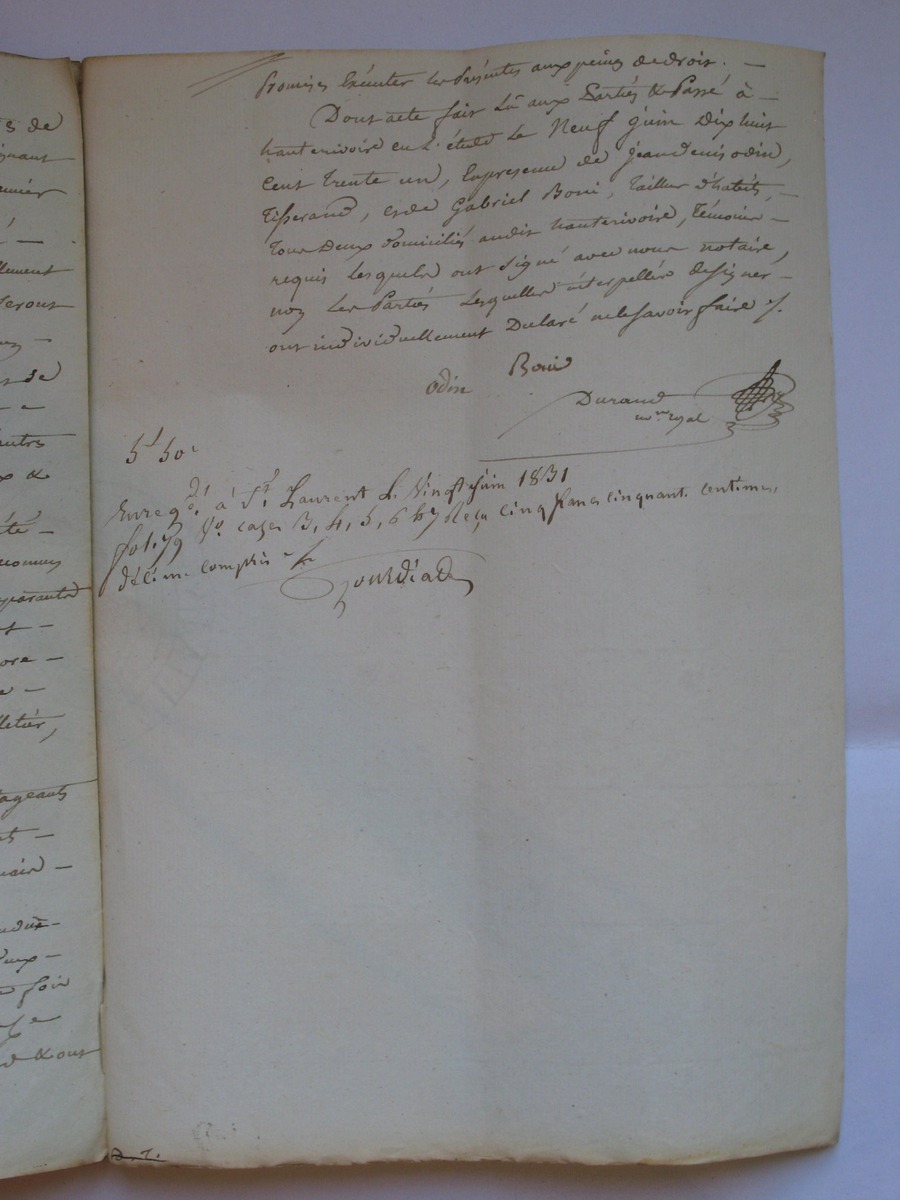 s de
ignant
lement
seront
s de
autres
x &
été
nommés
letier,
tageants
foix
Promises Exécuter les Présentes aux peines de droit. —
Dont acte fait Lu aux Parties & Passé à —
hauterivoire en l'étude Le Neuf juin Dix huit
Cent Trente un, En présence de Jean Denis odin,
Tisserand, et de Gabriel Boni, Tailleur d'habits, —
Tous Deux Domiciliés audit hauterivoire, Témoins —
requis Lesquels ont Signé avec nous notaire,
non Les Parties Lesquelles interpellées de signer —
ont individuellement Déclaré ne le Savoir faire ./.
odin Boni
Durand
no.re royal
5f 50c
Enregé. à St. Laurent Le Vingt juin 1831
fol. 79 Vo. cazes 3, 4, 5, 6 & 7 Reçu Cinq francs cinquante centimes,
décime compris
D. T.